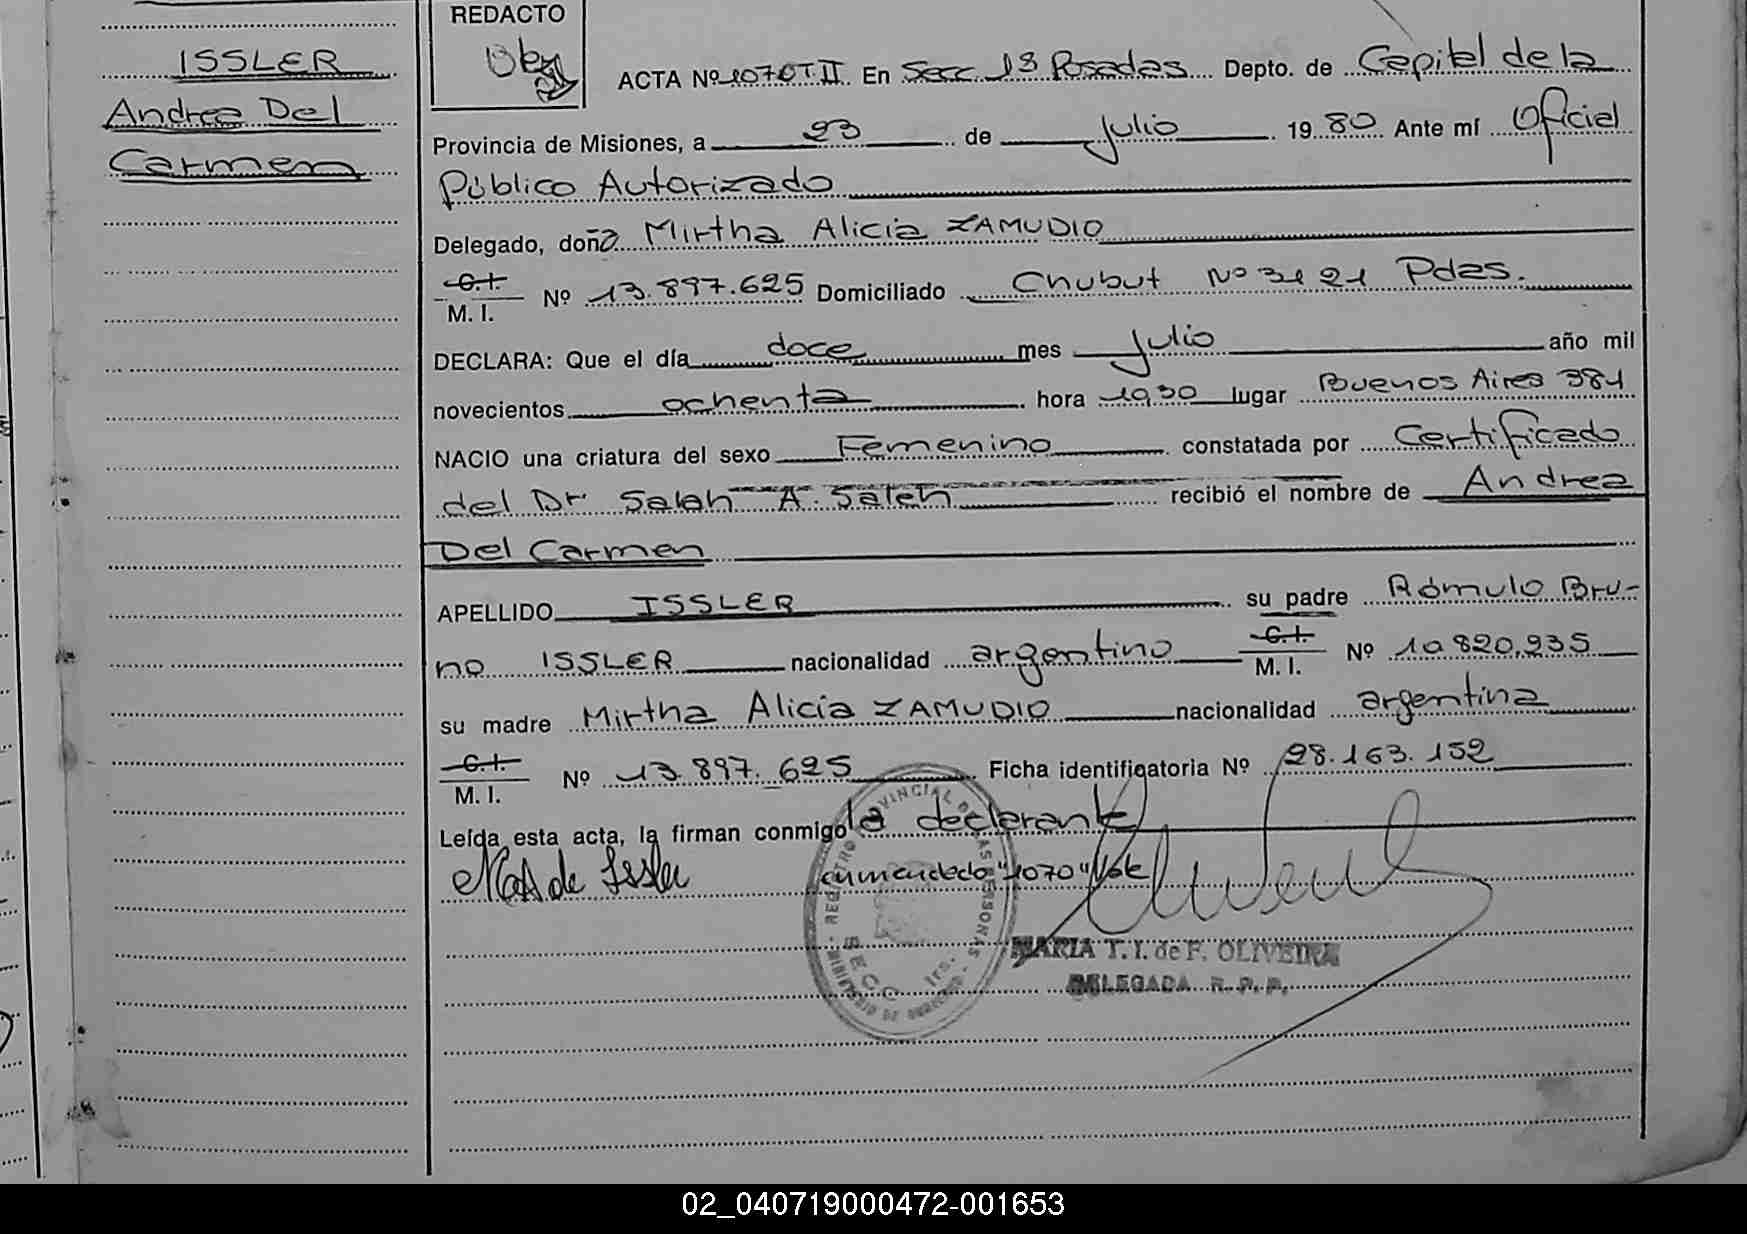 ISSLER
Andrea Del
Carmen
REDACTO
ACTA Nº 1070 T II En Secc 1ª Posadas Depto. de Capital de la
Provincia de Misiones, a 23 de Julio 1980 Ante mí Oficial
Público Autorizado
Delegado, doña Mirtha Alicia ZAMUDIO
C.I.
M. I. Nº 13.897.625 Domiciliado Chubut Nº 3121 Pdas.
DECLARA: Que el día doce mes Julio año mil
novecientos ochenta hora 1930 lugar Buenos Aires 381
NACIO una criatura del sexo Femenino constatada por Certificado
del Dr Salah A. Saleh recibió el nombre de Andrea
Del Carmen
APELLIDO ISSLER su padre Rómulo Bru-
no ISSLER nacionalidad argentino C.I. M. I. Nº 10.820.935
su madre Mirtha Alicia ZAMUDIO nacionalidad argentina
C.I.
M. I. Nº 13.897.625 Ficha identificatoria Nº 28.163.152
Leída esta acta, la firman conmigo la declarante
de Issler enmendado "1070" Vale
MARIA T. I. de F. OLIVEIRA
DELEGADA R. P. P.
REGISTRO PROVINCIAL DE LAS PERSONAS
SECC 1ra.
MINISTERIO DE GOBIERNO
02_040719000472-001653